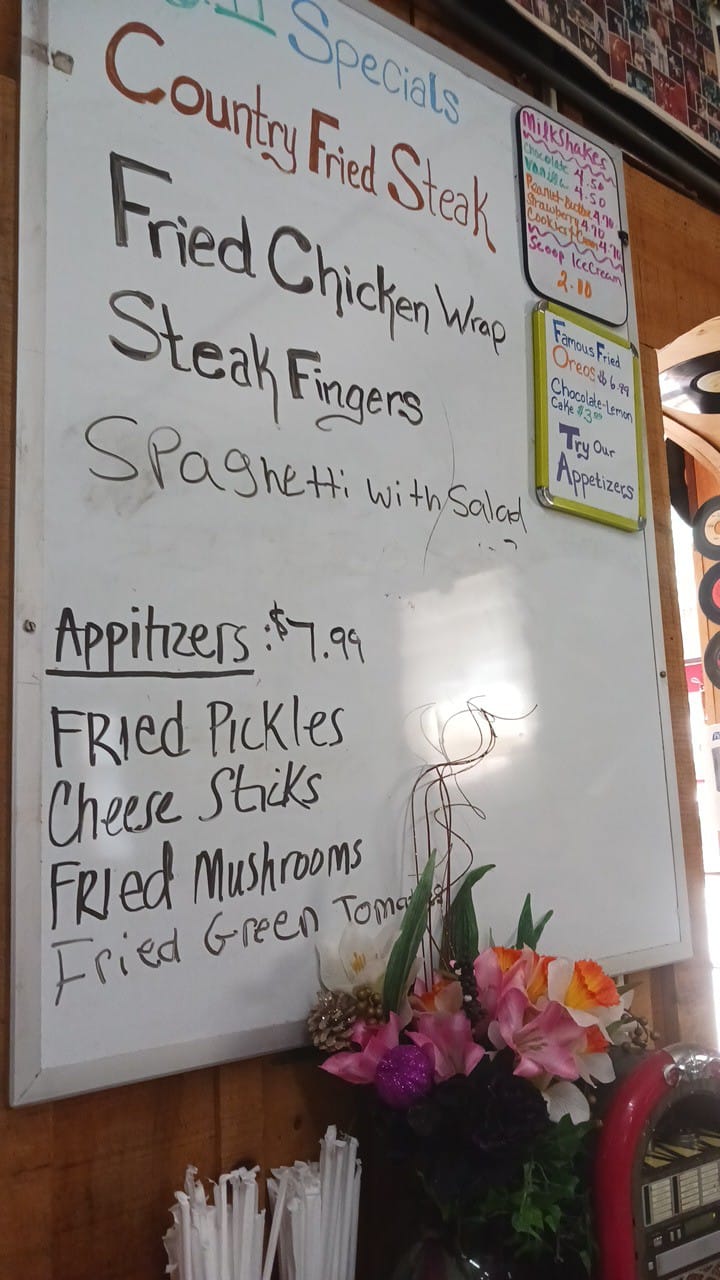 Specials
Country Fried Steak
Fried Chicken Wrap
Steak Fingers
Spaghetti with Salad
Appitizers :$7.99
Fried Pickles
Cheese Sticks
Fried Mushrooms
Fried Green Tomatoes
Milkshakes
Chocolate 4.50
Vanilla 4.50
Peanut-Butter 4.70
Strawberry 4.70
Cookies & Cream 4.70
Scoop Ice Cream
2.10
Famous Fried
Oreos $6.99
Chocolate-Lemon
Cake $3.99
Try Our
Appetizers